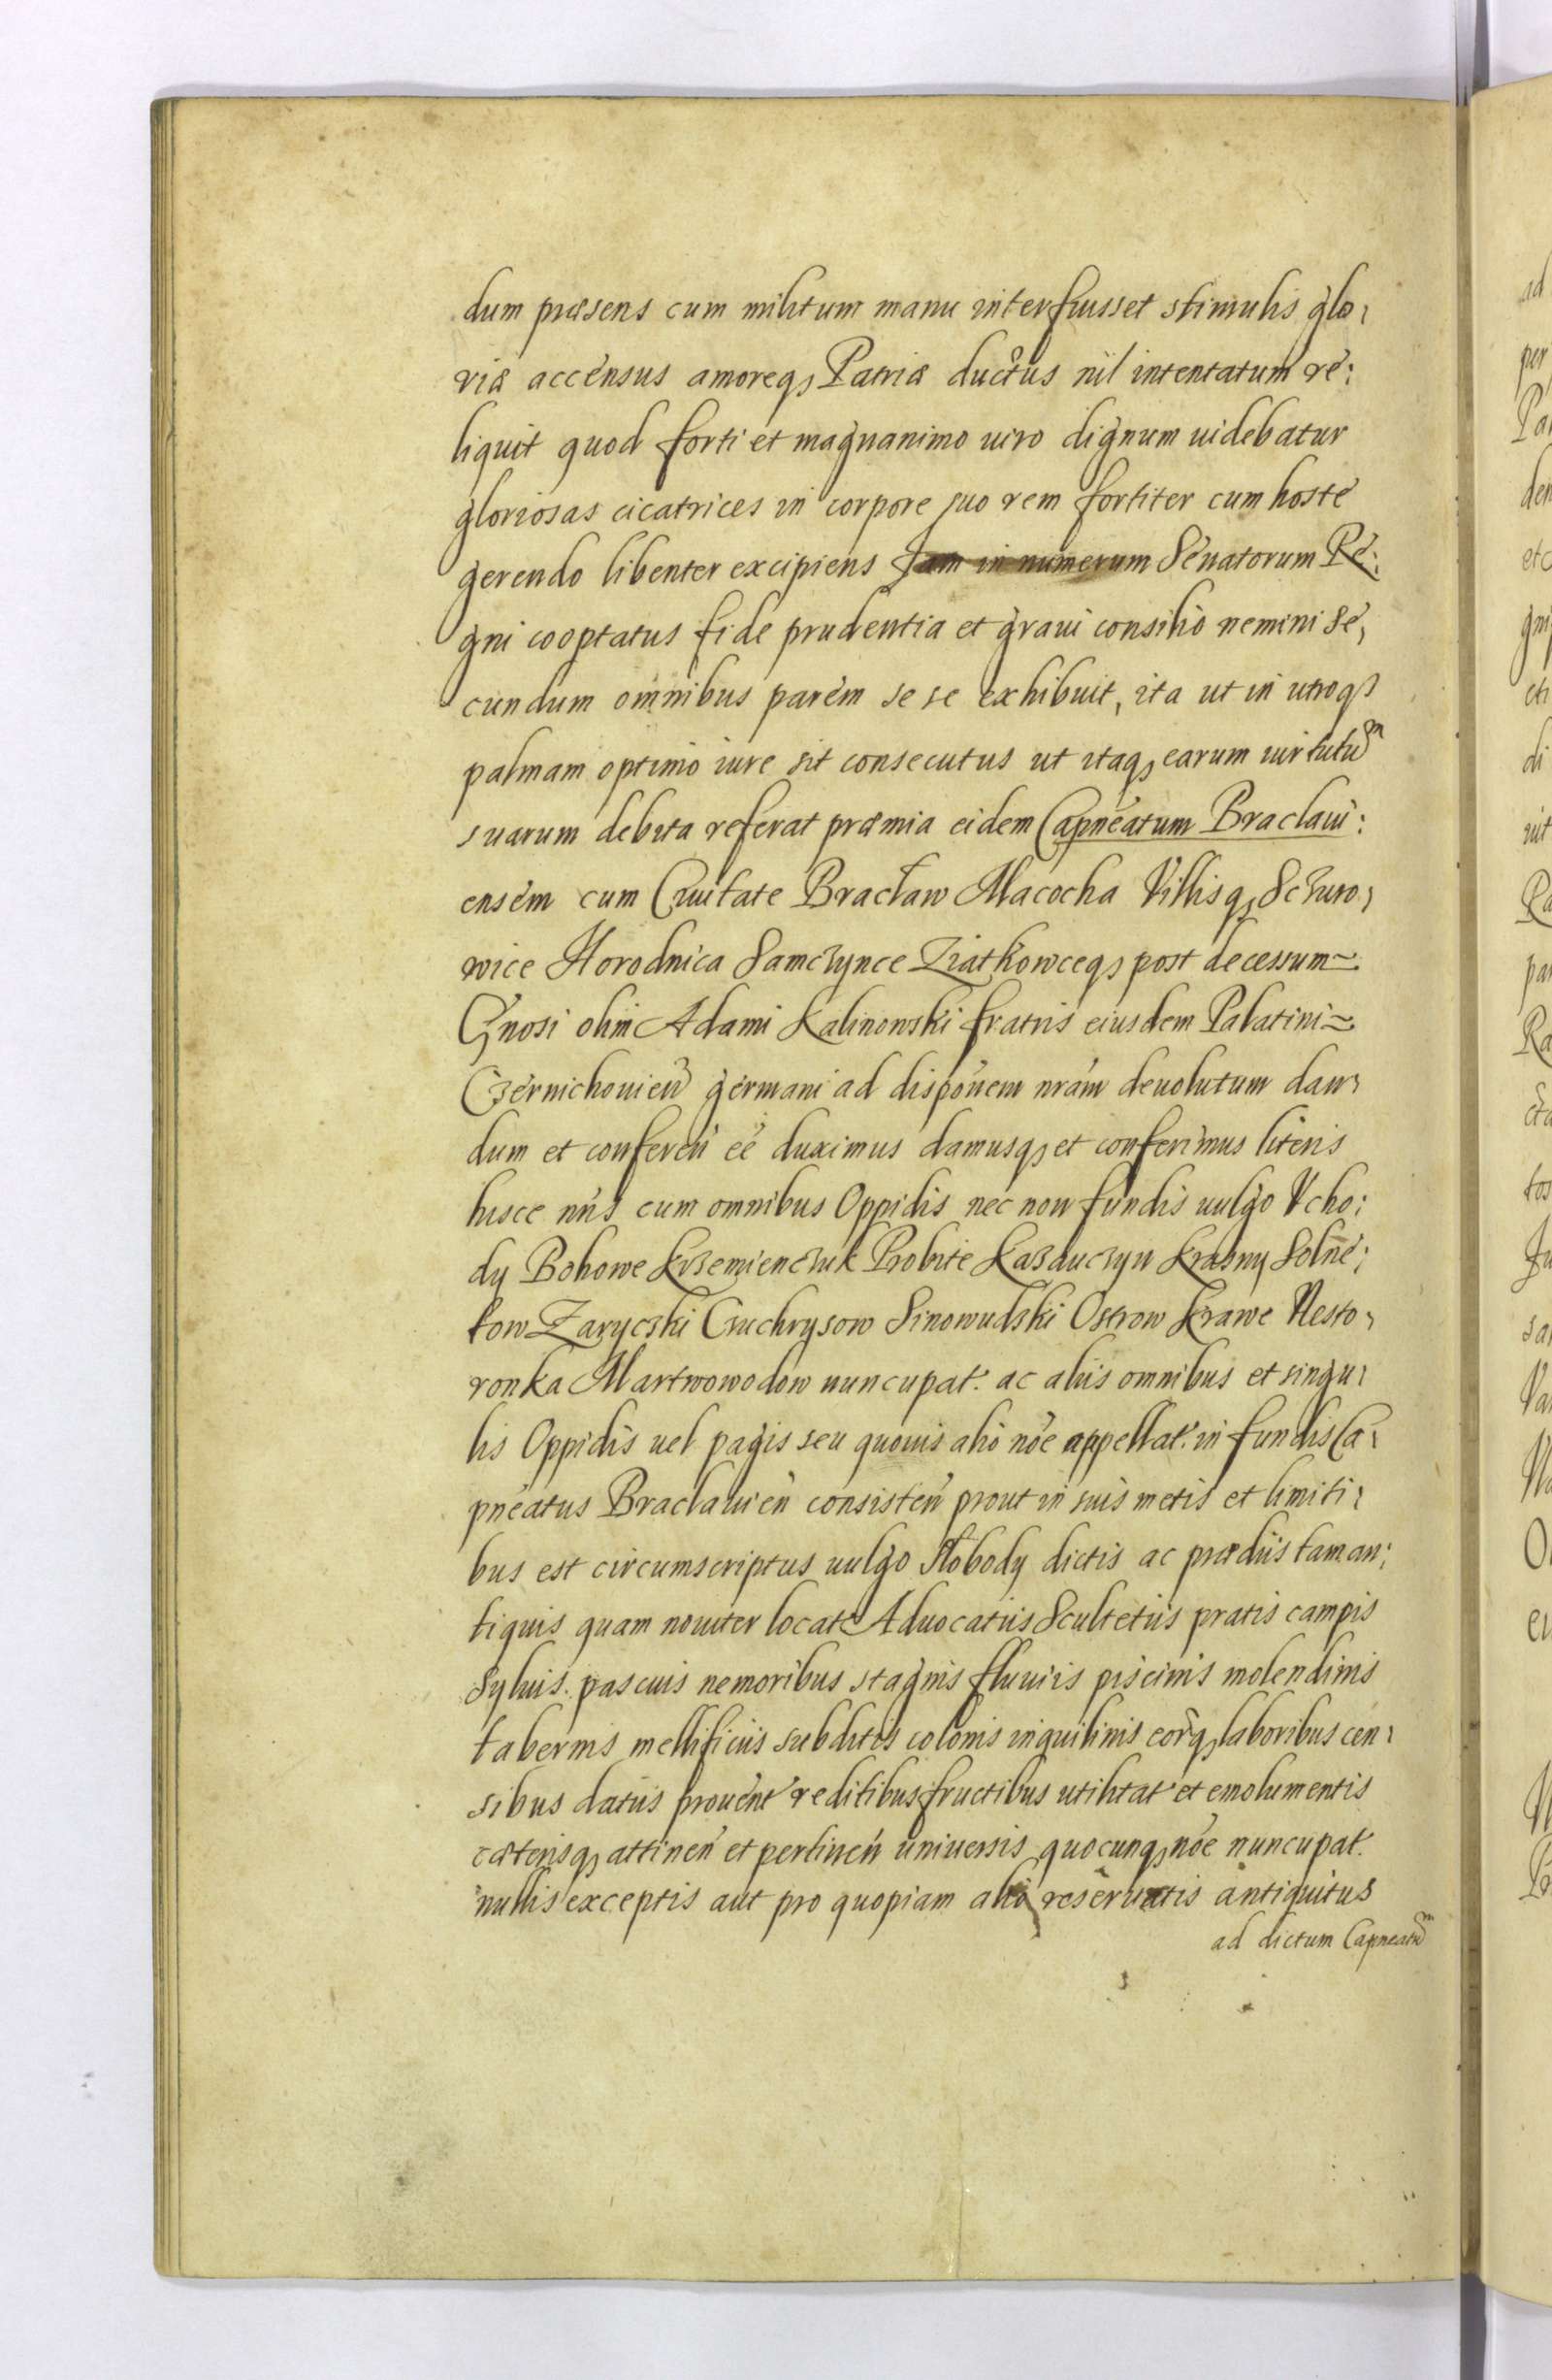 dum præsens cum militum manu interfuisset stimulis glo:
riæ accensus amoreq3 Patriæ ductus nil intentatum re:
liquit quod forti et magnanimo uiro dignum uidebatur
gloriosas cicatrices in corpore suo rem fortiter cum hoste
gerendo libenter excipiens Jam in numerum Senatorum Re:
gni cooptatus fide prudentia et graui consilio nemini se,
cundum omnibus parem se se exhibuit, ita ut in utroq3
palmam optimo iure sit consecutus ut itaq3 earum uirtutum
suarum debita referat præmia eidem Capneatum Braclaui:
ensem cum Ciuitate Bracław Macocha Villisq3 Sczuro,
wice Horodnica Samczynce Ziatkowceq3 post decessum
Gnosi olim Adami Kalinowski fratris eiusdem Palatini
Czernichouień germani ad disponem nram deuolutum dan,
dum et conferen eē duximus damusq3 et conferimus literis
hisce nris cum omnibus Oppidis nec non fundis uulgo Vcho:
dy Bohowe Krzemienczuk Probite Kazauczyn Krasny Solne:
kow Zarycski Czuchrysow Sinowudski Ostrow Krawe Nesto,
ronka Martwowodow nuncupat. ac aliis omnibus et singu,
lis Oppidis uel pagis seu quouis alio nōe appellat. in fundis Ca,
pneatus Braclauień consisten prout in suis metis et limiti,
bus est circumscriptus uulgo Słobody dictis ac prædiis tam an:
tiquis quam nouiter locatis Aduocatiis Scultetiis pratis campis
Syluis. pascuis nemoribus stagnis fluuiis piscinis molendinis
tabernis mellificiis subditis colonis inquilinis eorq3 laboribus cen,
sibus datiis prouent reditibus fructibus utilitat et emolumentis
cæterisq3 attinen et pertinen uniuersis quocunq3 nōe nuncupat.
nullis exceptis aut pro quopiam alio reseruatis antiquitus
ad dictum Capneatum